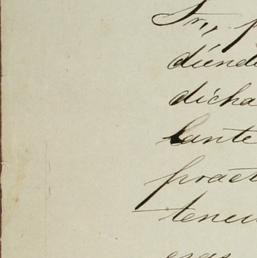 Sr., p
diendo
dicha
lante
pract
teniu
esas